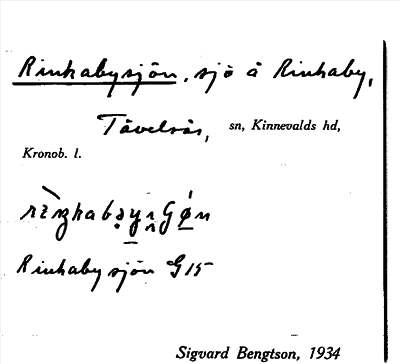 Rinkabysjön, sjö å Rinkaby,
Tävelsås, sn, Kinnevalds hd,
Kronob. l.
Rinkabysjön G 15
Sigvard Bengtson, 1934